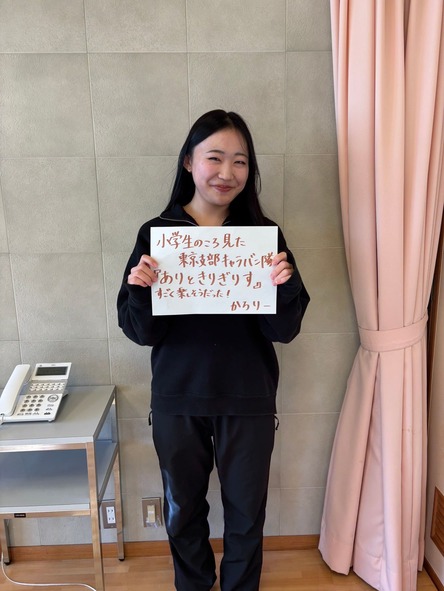 小学生のころ見た
東京支部キャラバン隊
『ありときりぎりす』
すごく楽しそうだった！
かろりー